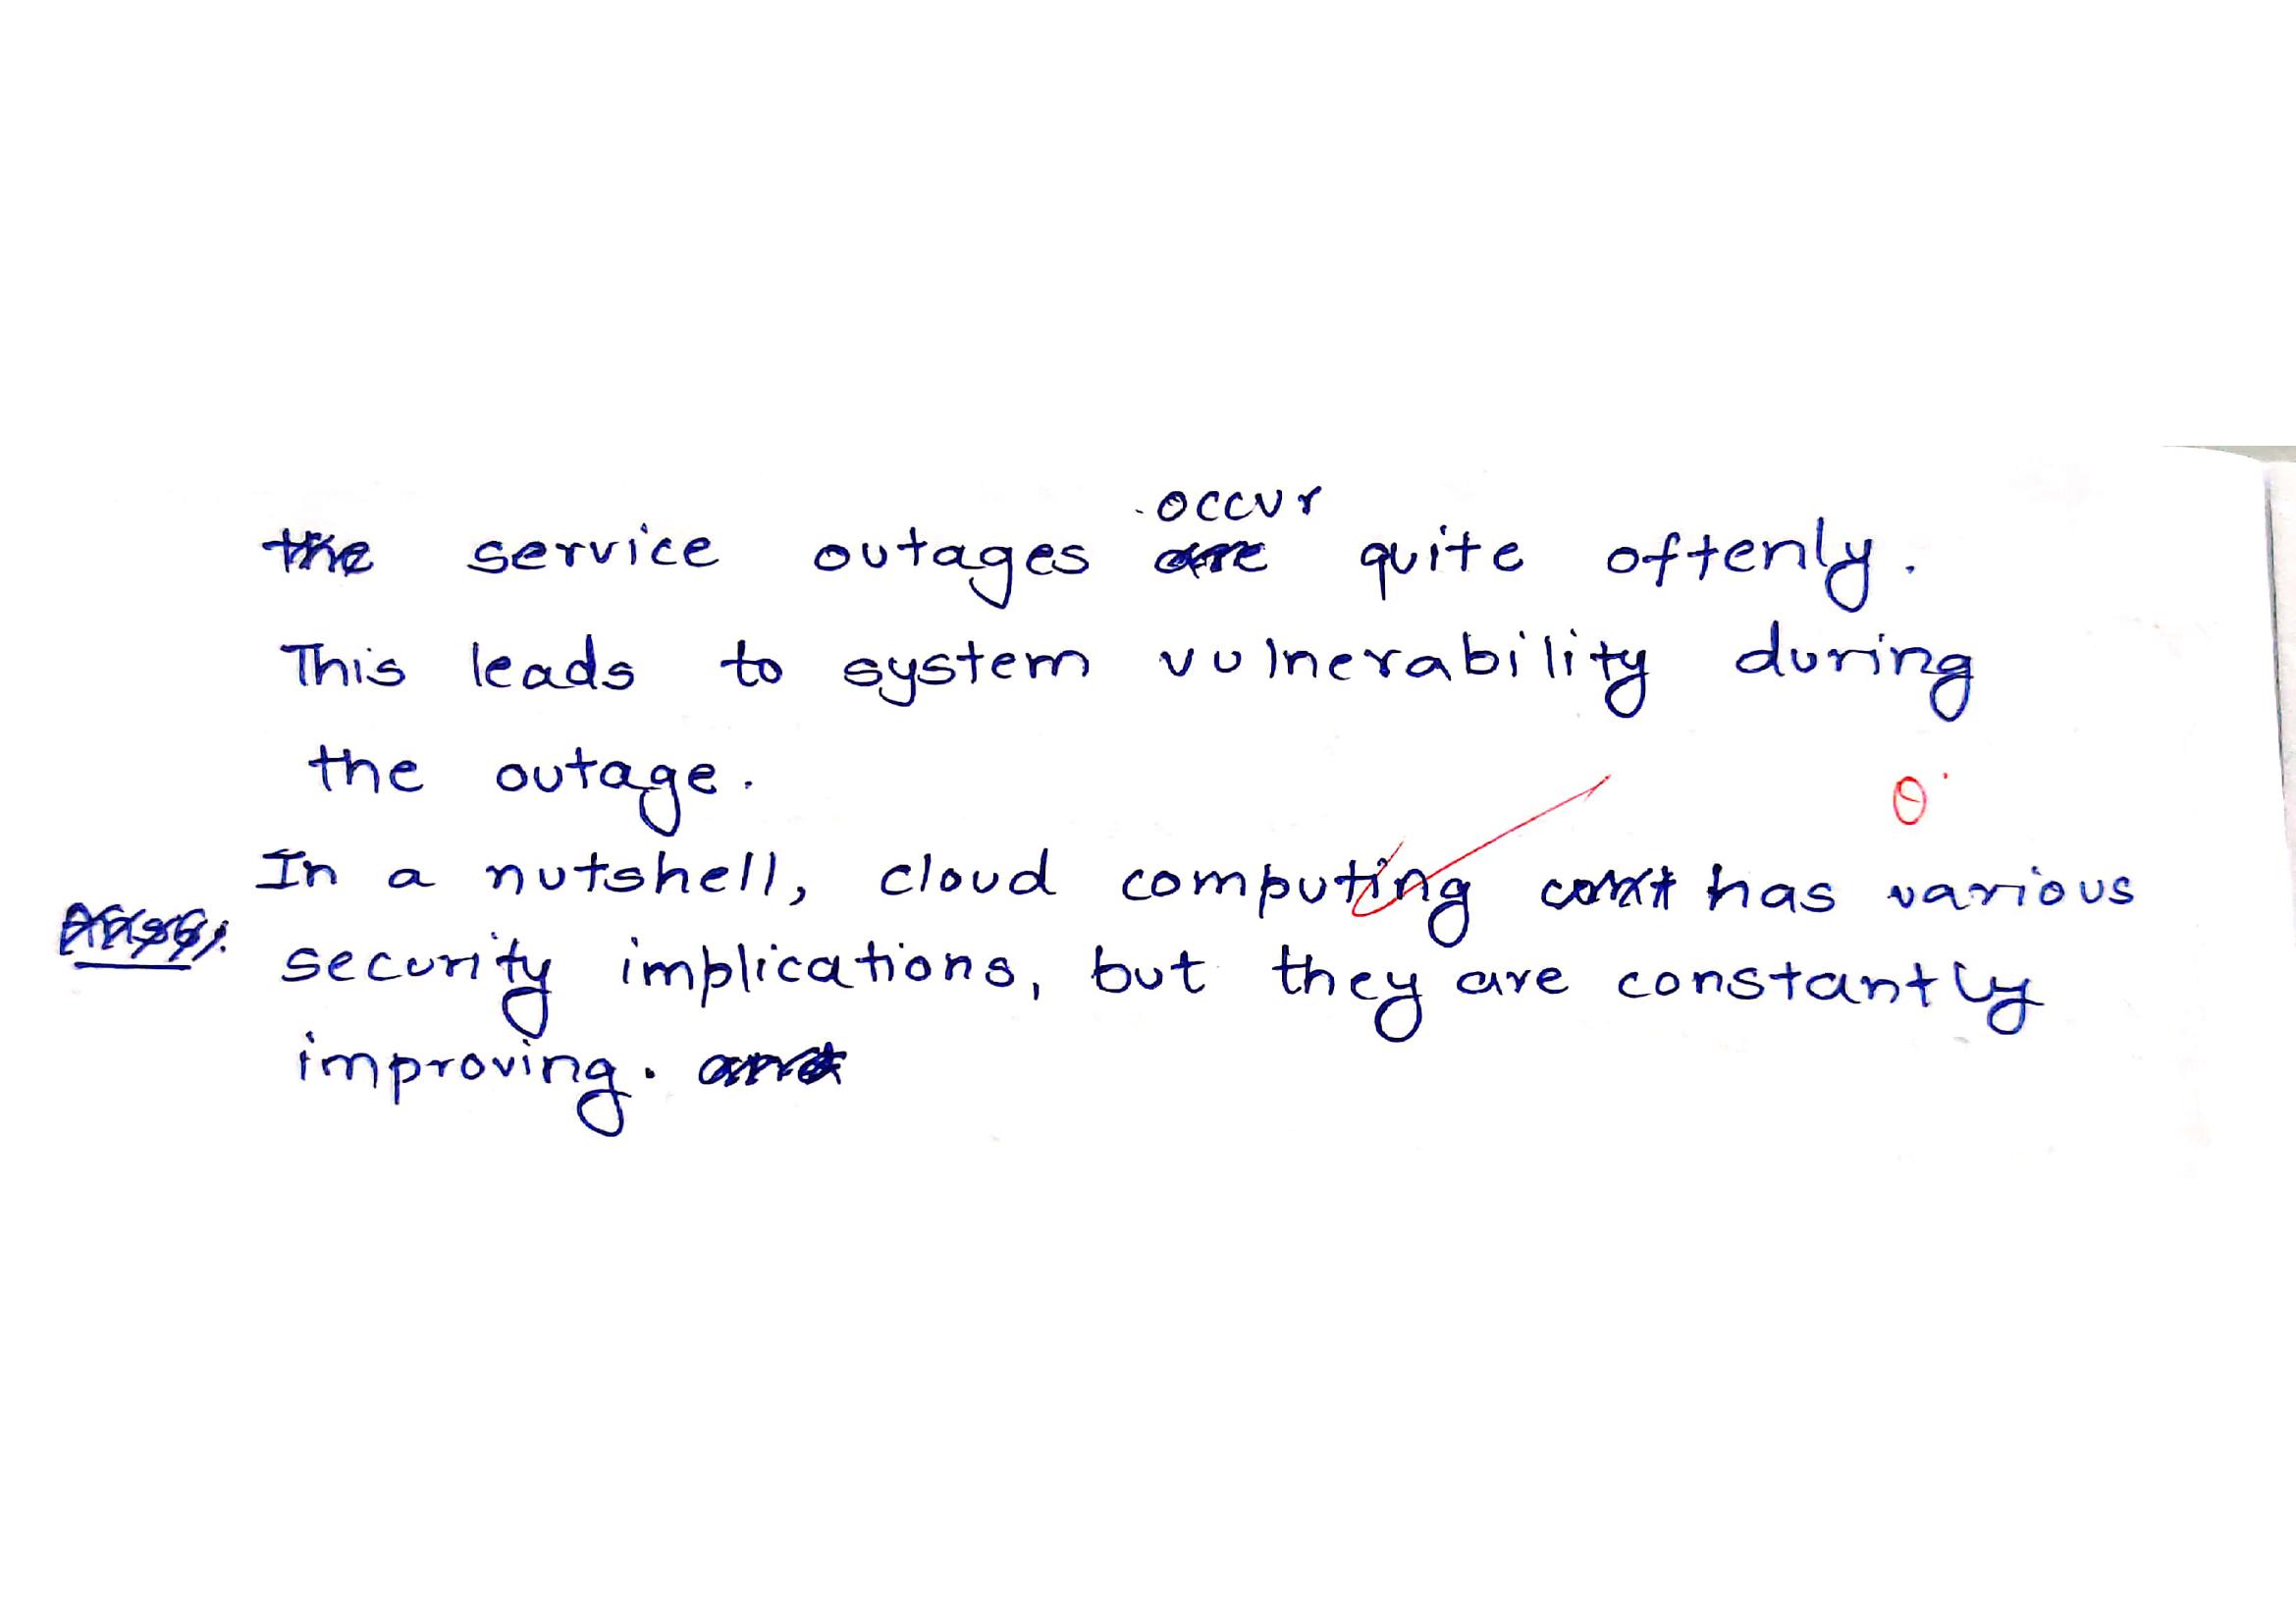 the service outages occur quite oftenly.
This leads to system vulnerability during
the outage.
In a nutshell, cloud computing has various
security implications, but they are constantly
improving.